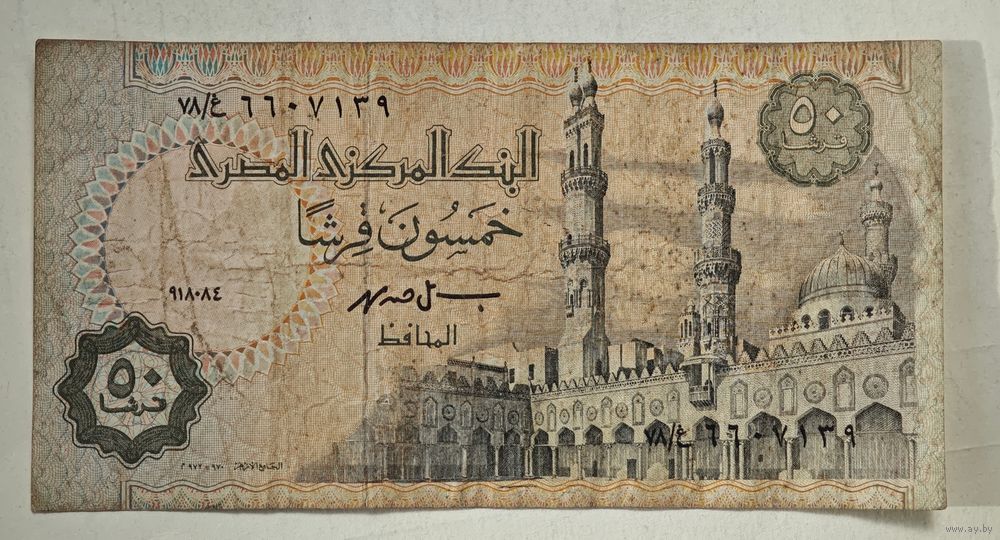 ٧٨/غ ٦٦٠٧١٣٩
٥٠
قرشا
البنك المركزى المصرى
خمسون قرشًا
٩١٨٠٨٤
المحافظ
٥٠
قرشا
٧٨/غ ٦٦٠٧١٣٩
الجامع الأزهر ٩٧٠ - ٩٧٢ م
www.ay.by